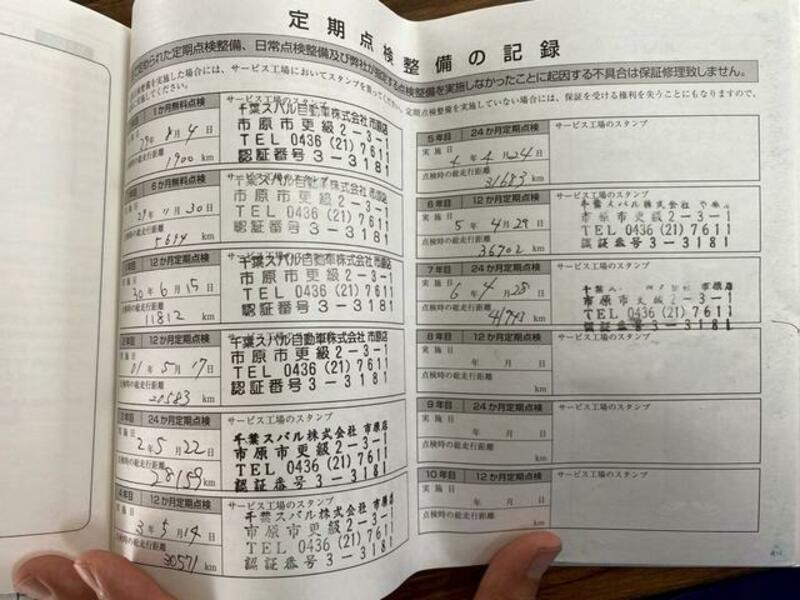 定期点検整備の記録
られた定期点検整備、日常点検整備及び弊社が指定する点検整備を実施しなかったことに起因する不具合は保証修理致しません。
整備を実施した場合には、サービス工場においてスタンプを貰ってください。定期点検整備を実施していない場合には、保証を受ける権利を失うことにもなりますので、
に実施してください。
1か月無料点検
サービス工場のスタンプ
実施日
29年8月4日
点検時の総走行距離
1900 km
千葉スバル自動車株式会社 市原店
市原市更級2-3-1
TEL 0436 (21) 7611
認証番号3-3181
6か月無料点検
サービス工場のスタンプ
29年11月30日
5694 km
千葉スバル自動車株式会社 市原店
市原市更級2-3-1
TEL 0436 (21) 7611
認証番号3-3181
12か月定期点検
サービス工場のスタンプ
実施日
30年6月15日
点検時の総走行距離
11812 km
千葉スバル自動車株式会社 市原店
市原市更級2-3-1
TEL 0436 (21) 7611
認証番号3-3181
2年目 12か月定期点検
サービス工場のスタンプ
実施日
01年5月17日
点検時の総走行距離
20583 km
千葉スバル自動車株式会社 市原店
市原市更級2-3-1
TEL 0436 (21) 7611
認証番号3-3181
3年目 24か月定期点検
サービス工場のスタンプ
実施日
2年5月22日
点検時の総走行距離
28159 km
千葉スバル株式会社 市原店
市原市更級2-3-1
TEL 0436 (21) 7611
認証番号3-3181
4年目 12か月定期点検
サービス工場のスタンプ
実施日
3年5月14日
点検時の総走行距離
30571 km
千葉スバル株式会社 市原店
市原市更級2-3-1
TEL 0436 (21) 7611
認証番号3-3181
5年目 24か月定期点検
サービス工場のスタンプ
実施日
4年4月24日
点検時の総走行距離
31683 km
6年目 12か月定期点検
サービス工場のスタンプ
実施日
5年4月29日
点検時の総走行距離
36702 km
千葉スバル株式会社
市原市更級2-3-1
TEL 0436 (21) 7611
認証番号3-3181
7年目 24か月定期点検
サービス工場のスタンプ
実施日
6年4月28日
点検時の総走行距離
41743 km
千葉 会社 市原店
市原市更級2-3-1
TEL 0436 (21) 7611
認証番号3-3181
8年目 12か月定期点検
サービス工場のスタンプ
実施日
年 月 日
点検時の総走行距離
km
9年目 24か月定期点検
サービス工場のスタンプ
実施日
年 月 日
点検時の総走行距離
km
10年目 12か月定期点検
サービス工場のスタンプ
実施日
年 月 日
点検時の総走行距離
km